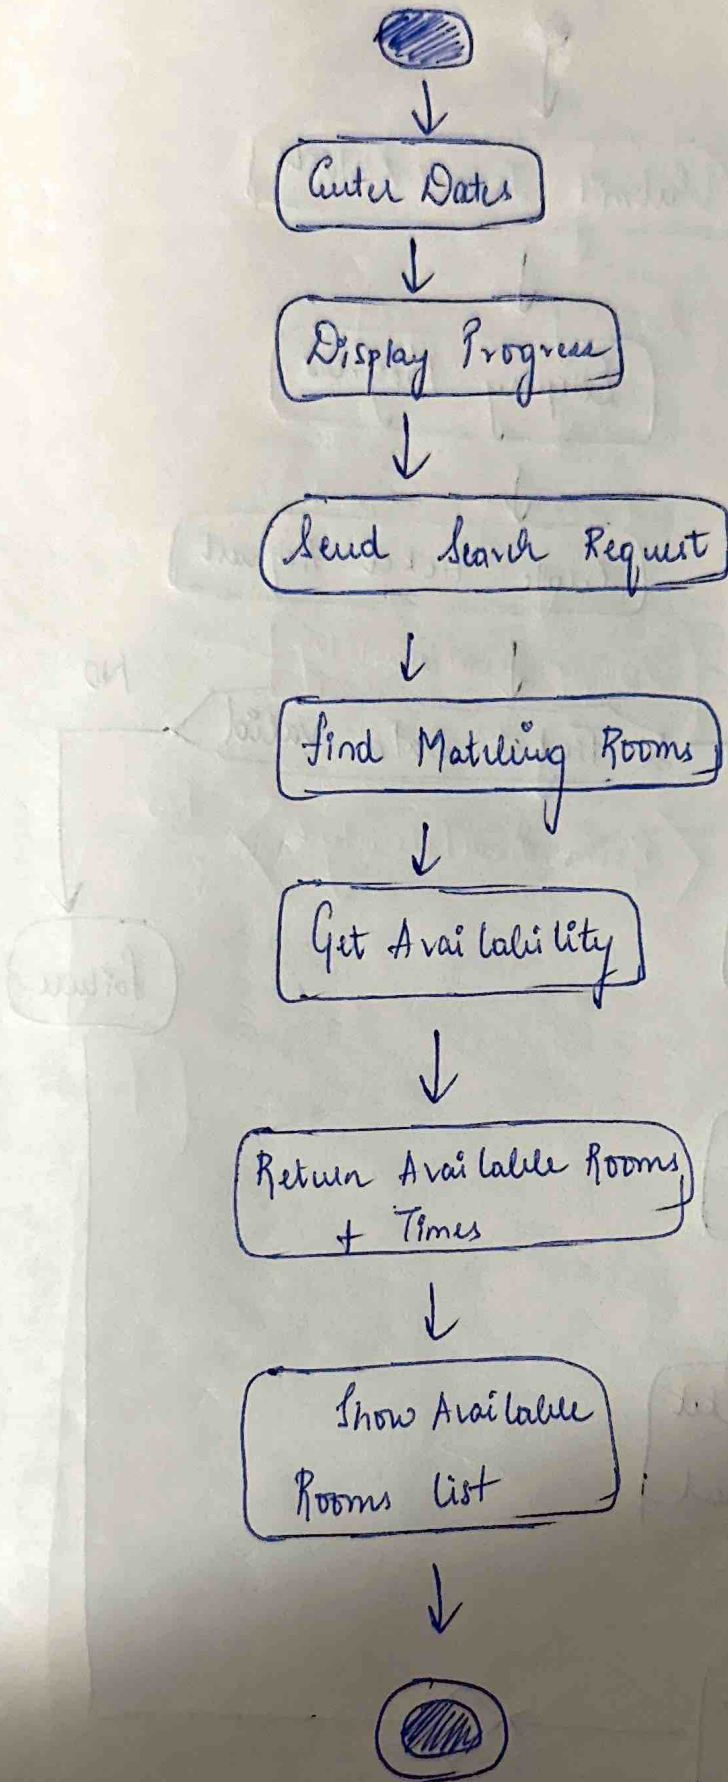 Enter Dates
Display Progress
Send Search Request
find Matching Rooms
Get Availability
Return Available Rooms
+ Times
Show Available
Rooms list
NO
Failure